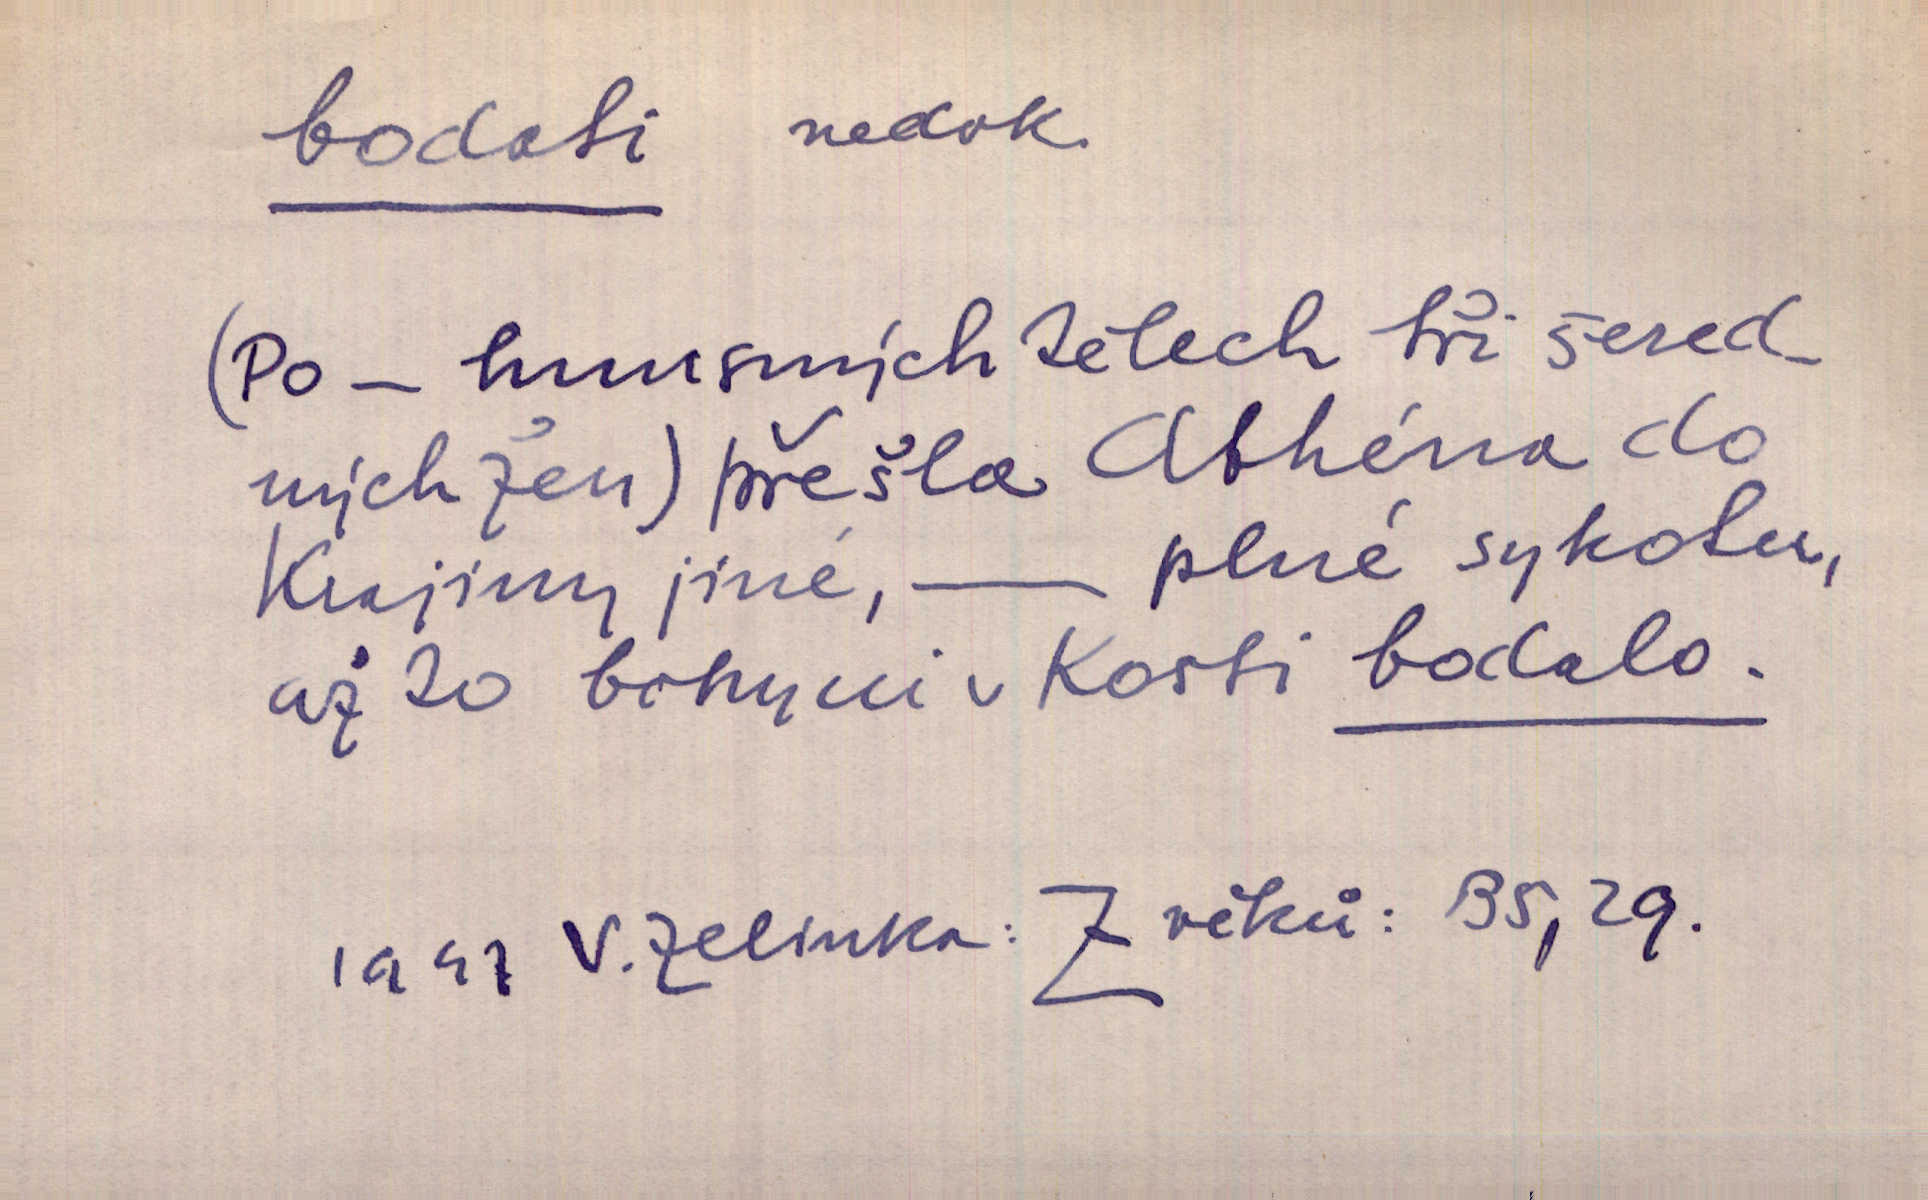 bodati nedok.
(Po — hnusných tělech tří šered-
ných žen) přešla Athéna do
krajiny jiné, — plné sykotu,
až to bohyni v kosti bodalo.
1947 V. Zelinka: Z věků: 35, 29.